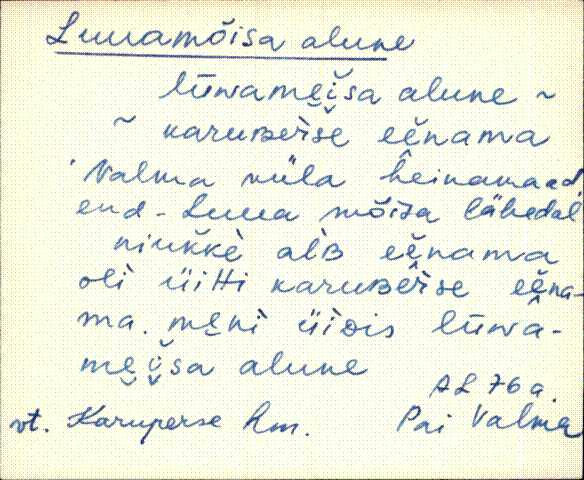 Luuamõisa alune
lūwamei̬šsa alune ~
~ karuʙeř̀še eĕnama
Valma küla heinamaad
end. Luua mõisa lähedal
niukkè alʙ̀ eĕnama
oli üitti karuʙeř̀se eĕna-
ma. meni üìdis lūwa-
mei̬šsa alune
AL 76 a.
vt. Karuperse hm. Pai Valma